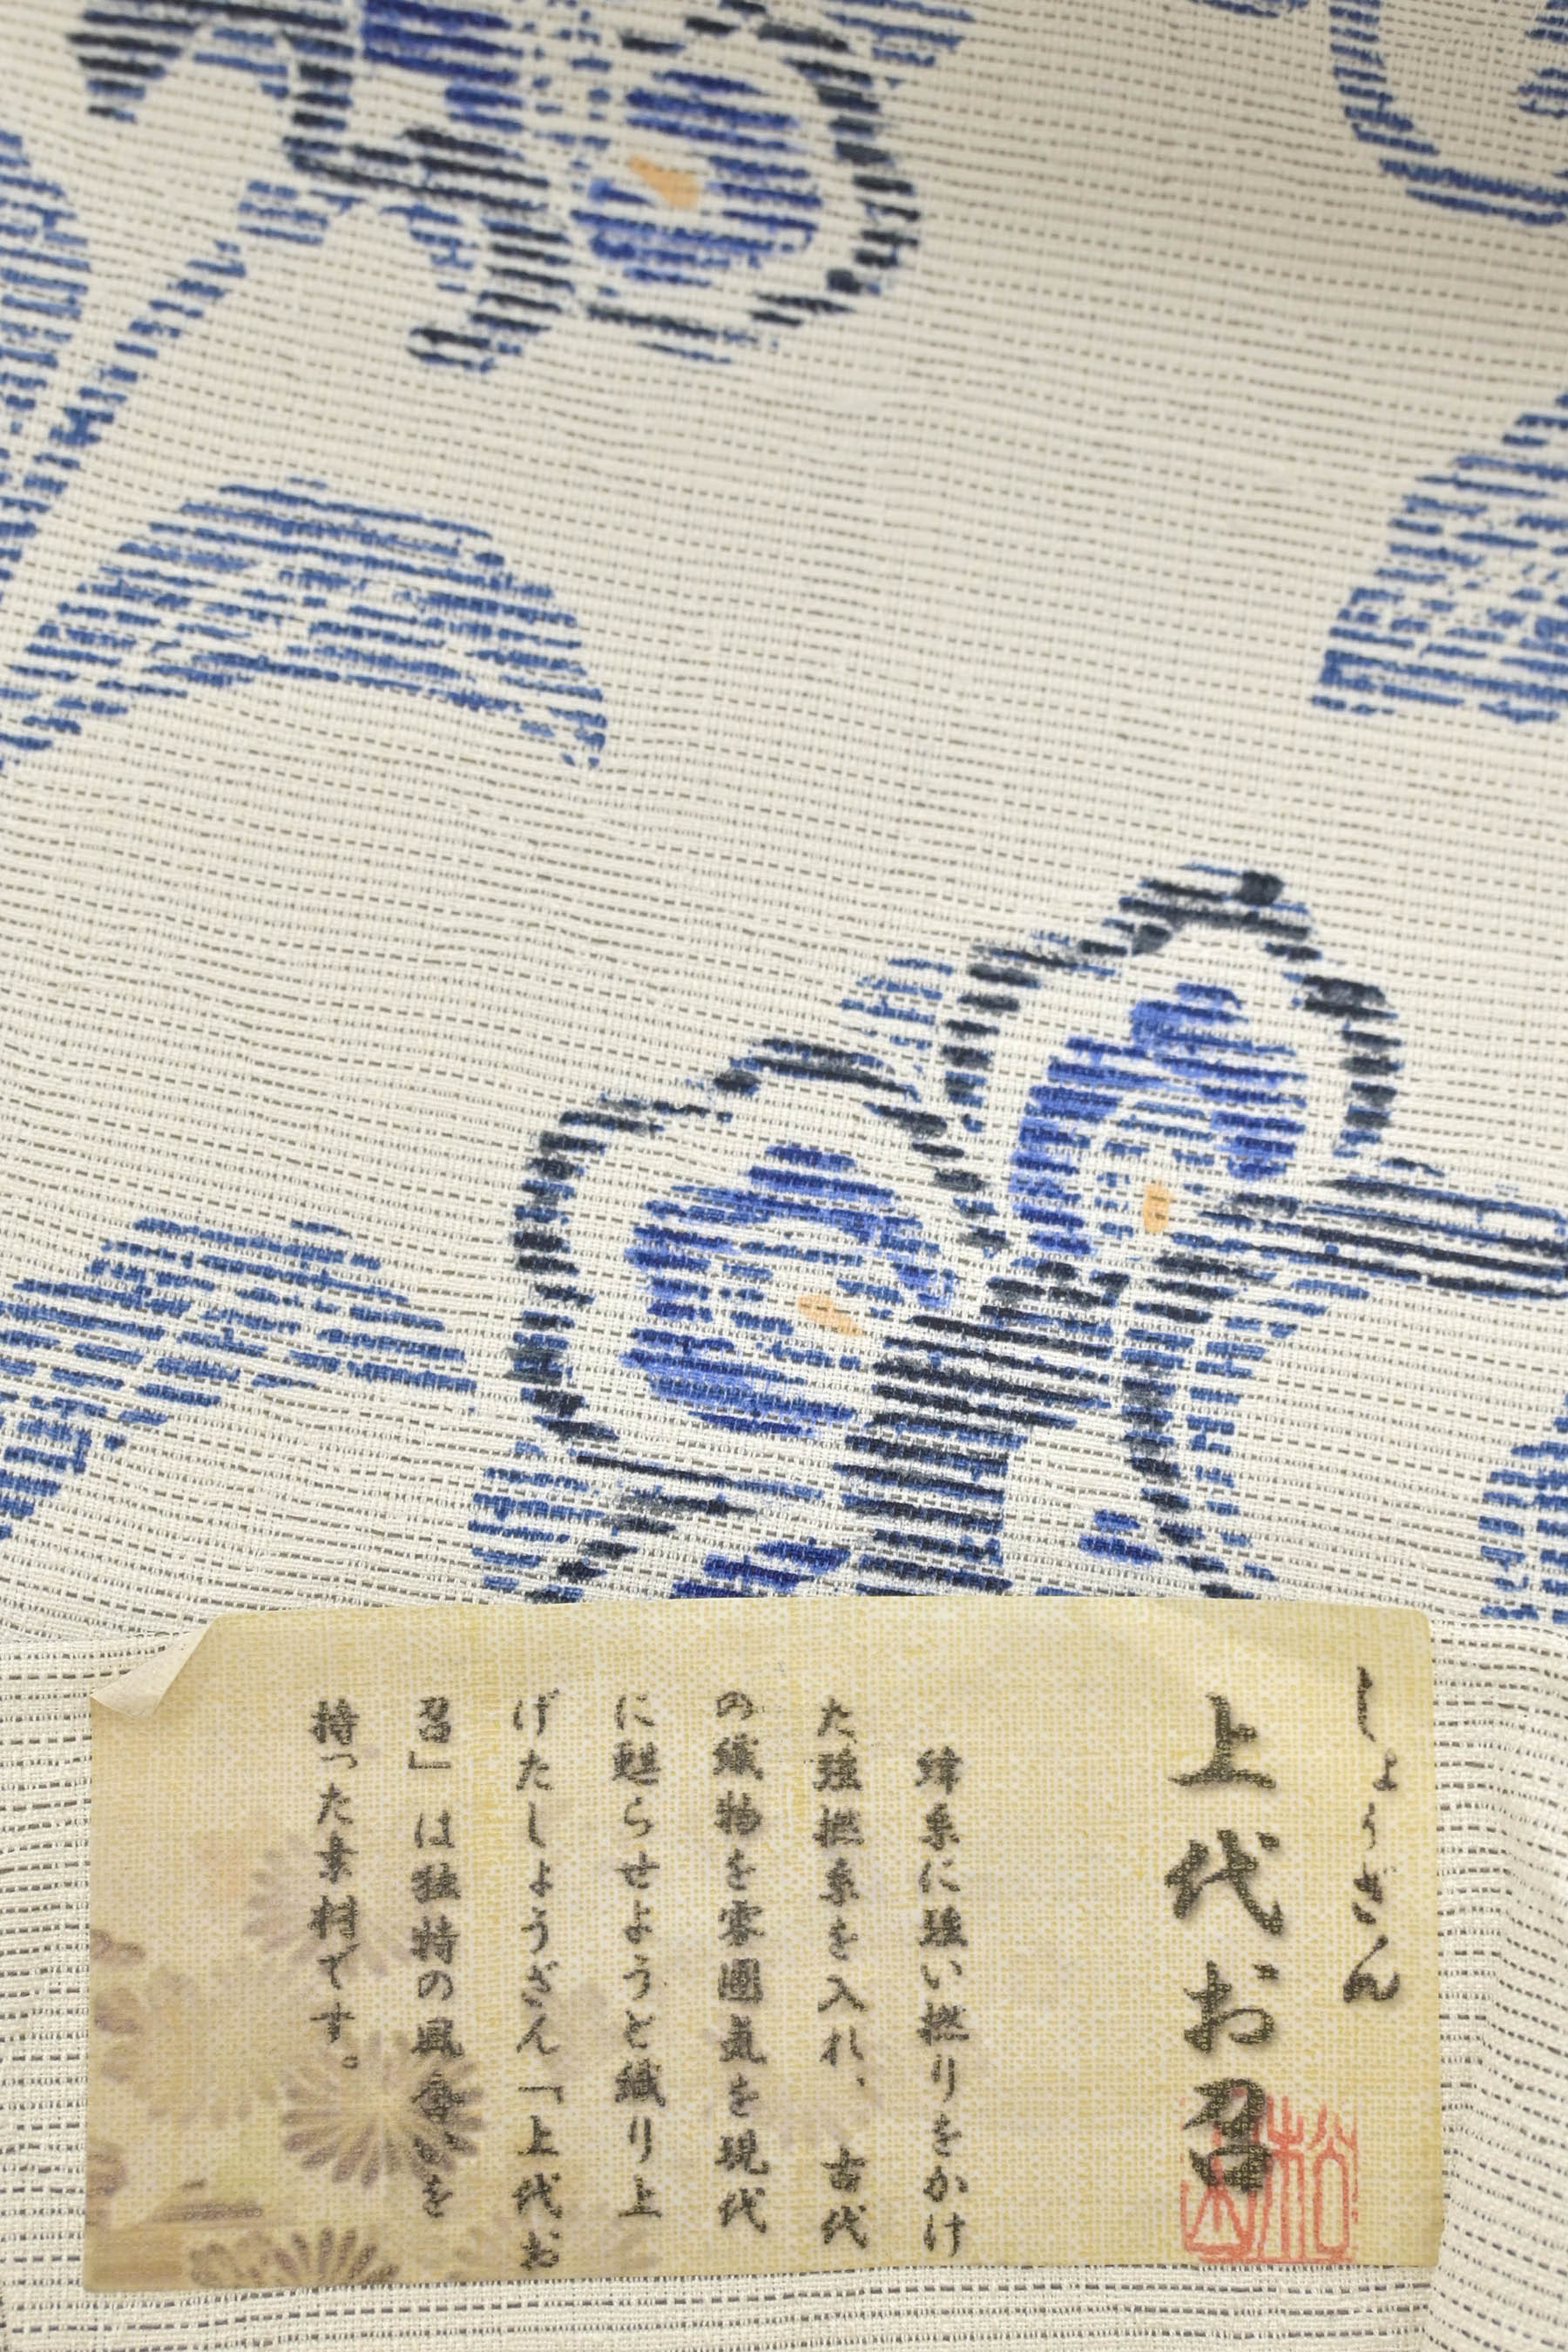 しょうざん
上代お召
緯糸に強い撚りをかけ
た強撚糸を入れ、古代
の織物を雰囲気を現代
に魁らせようと織り上
げたしょうざん「上代お
召」は独特の風合いを
持った素材です。